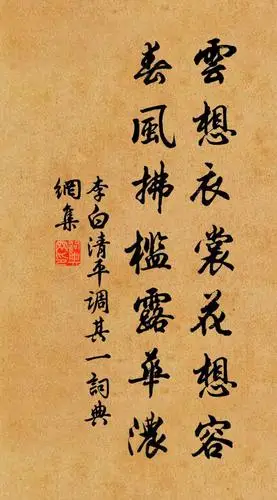 雲想衣裳花想容
春風拂檻露華濃
李白清平調其一詞典
網集